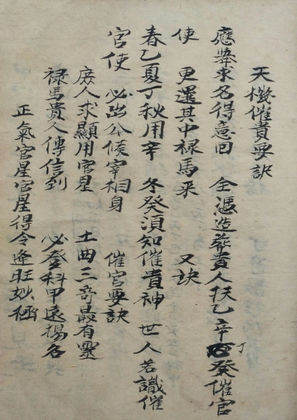 天機催貴要訣
應舉求名得意回　全憑造葬貴人扶乙辛丁癸催官
使　更選其中祿馬來　又訣
春乙夏丁秋用辛　冬癸須知催貴神　世人若識催
官使　必出公侯宰相身　催官要訣
庶人求顯用官星　土曲三奇最有靈
祿馬貴人傳信到　必登科甲遠揚名
正氣官星官星得令逢旺妙極